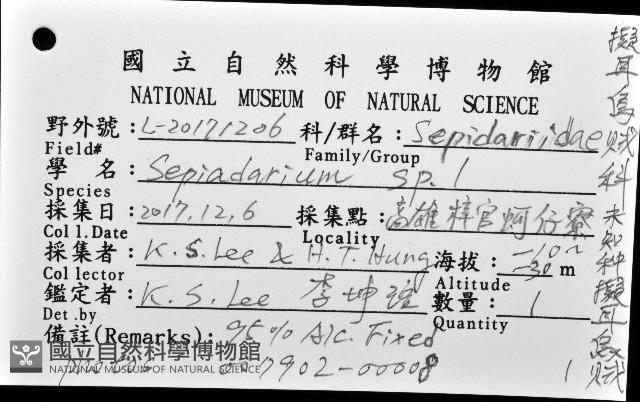 國立自然科學博物館
NATIONAL MUSEUM OF NATURAL SCIENCE
野外號: L-20171206 科/群名: Sepidariidae
Field# Family/Group
學 名: Sepiadarium sp. 1
Species
採集日: 2017.12.6 採集點: 高雄梓官蚵仔寮
Coll.Date Locality
採集者: K.S. Lee & H.T. Hung 海拔: -10~-30 m
Collector Altitude
鑑定者: K.S. Lee 李坤瑄 數量: 1
Det.by Quantity
備註(Remarks): 95% Alc. Fixed
7902-00008 1
國立自然科學博物館
NATIONAL MUSEUM OF NATURAL SCIENCE
擬耳烏賊科 未知種擬耳烏賊